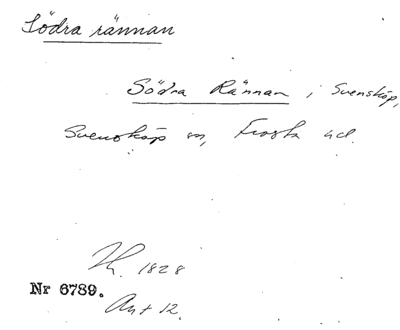 Södra rännan
Södra Rännan i Svensköp,
Svensköp sn, Frosta hd.
1828
Nr 6789.
Ant 12.